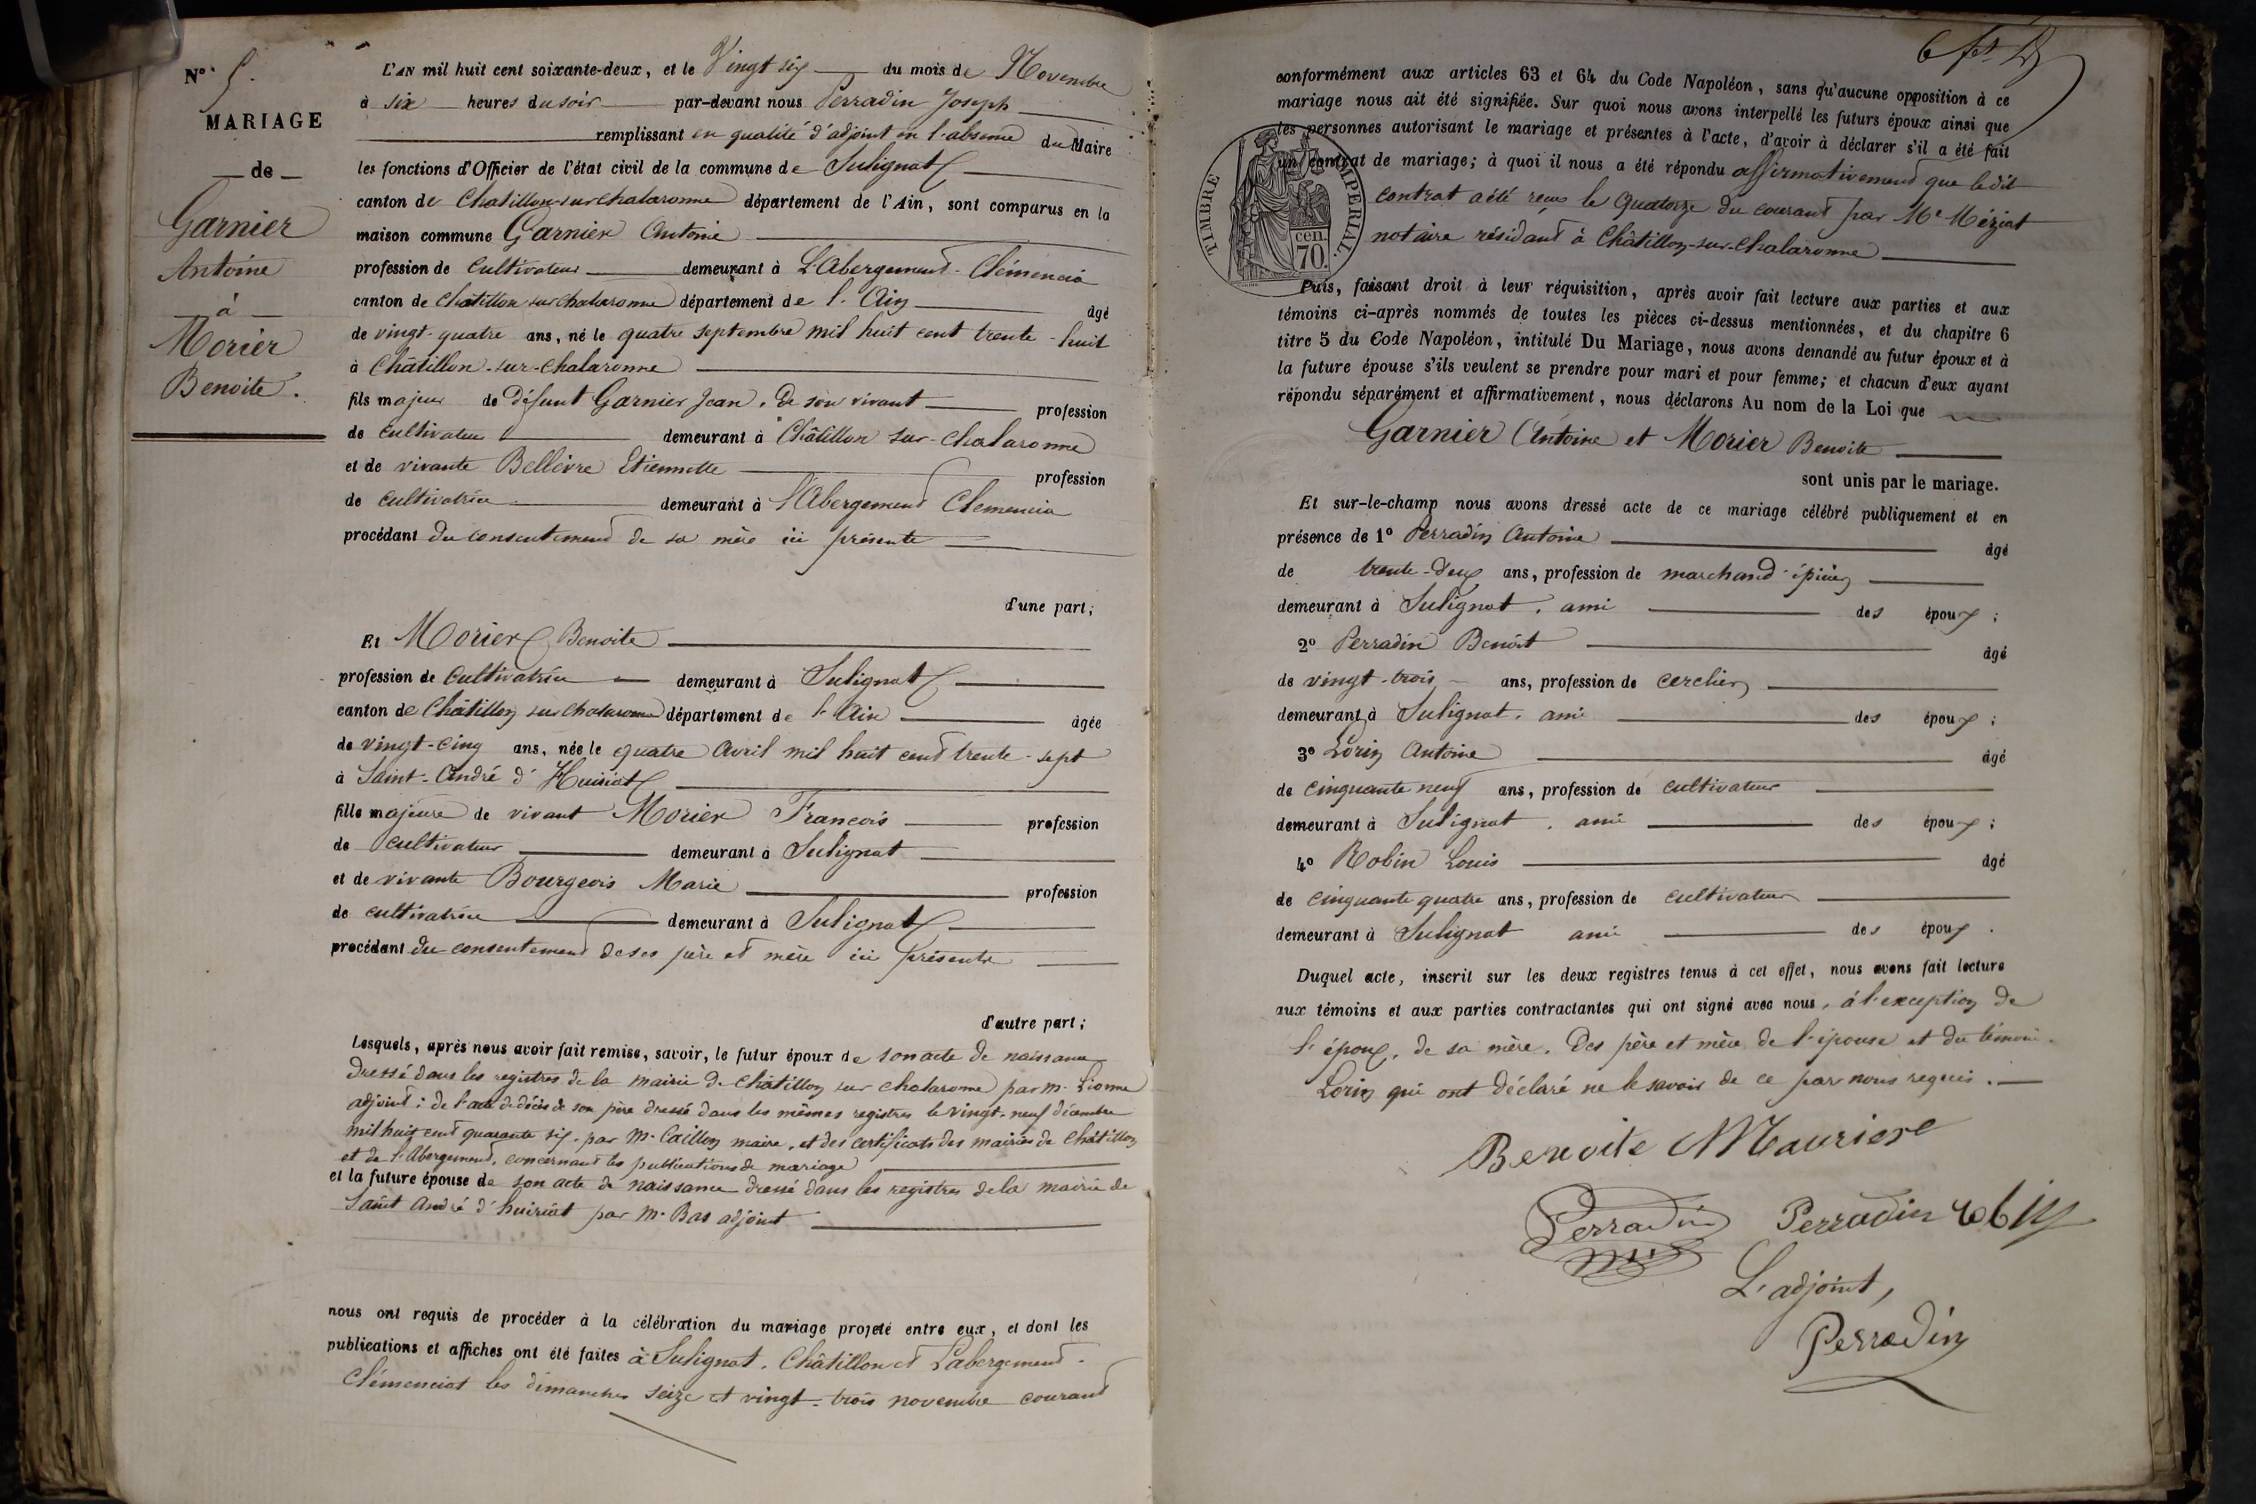 N° 5.
MARIAGE
de
Garnier
Antoine
à
Morier
Benoite.
L'AN mil huit cent soixante-deux, et le Vingt six du mois de Novembre
à six heures du soir par-devant nous Perradin Joseph
remplissant en qualité d'adjoint en l'absence du Maire
les fonctions d'Officier de l'état civil de la commune de Sulignat
canton de Chatillon-sur-Chalaronne département de l'Ain, sont comparus en la
maison commune Garnier Antoine
profession de Cultivateur demeurant à L'Abergement-Clémencia
canton de Châtillon sur Chalaronne département de l'Ain âgé
de vingt-quatre ans, né le quatre septembre mil huit cent trente-huit
à Châtillon-sur-Chalaronne
fils majeur de Défunt Garnier Jean, De son vivant profession
de cultivateur demeurant à Châtillon sur-Chalaronne
et de vivante Bellèvre Etiennette profession
de cultivatrice demeurant à l'Abergement Clemencia
procédant du consentement de sa mère ici présente
d'une part;
Et Morier Benoite
profession de Cultivatrice demeurant à Sulignat
canton de Châtillon sur Chalaronne département de l'Ain âgée
de vingt-cinq ans, née le quatre Avril mil huit cent trente-sept
à Saint-André d'Huiriat
fille majeure de vivant Morier Francois profession
de cultivateur demeurant à Sulignat
et de vivante Bourgeois Marie profession
de cultivatrice demeurant à Sulignat
procédant du consentement de ses père et mère ici présents
d'autre part;
Lesquels, après nous avoir fait remise, savoir, le futur époux de son acte de naissance
dressé dans les registres de la mairie de Châtillon sur Chalaronne par m. Lionne
adjoint: de l'acte de décès de son père dressé dans les mêmes registres le vingt-neuf décembre
mil huit cent quarante six, par M. Caillon maire, et des certificats des mairies de Châtillon
et de l'Abergement, concernant les publications de mariage
et la future épouse de son acte de naissance dressé dans les registres de la mairie de
Saint André d'huiriat par M. Bas adjoint
nous ont requis de procéder à la célébration du mariage projeté entre eux, et dont les
publications et affiches ont été faites à Sulignat, Châtillon et Labergement-
Clémenciat les dimanches seize et vingt-trois novembre courant
conformément aux articles 63 et 64 du Code Napoléon, sans qu'aucune opposition à ce
mariage nous ait été signifiée. Sur quoi nous avons interpellé les futurs époux ainsi que
les personnes autorisant le mariage et présentes à l'acte, d'avoir à déclarer s'il a été fait
un contrat de mariage; à quoi il nous a été répondu affirmativement que le dit
contrat a été reçu le quatorze du courant par Me Méziat
notaire résidant à Châtillon-sur-Chalaronne
TIMBRE IMPERIAL.
cen.
70.
Puis, faisant droit à leur réquisition, après avoir fait lecture aux parties et aux
témoins ci-après nommés de toutes les pièces ci-dessus mentionnées, et du chapitre 6
titre 5 du Code Napoléon, intitulé Du Mariage, nous avons demandé au futur époux et à
la future épouse s'ils veulent se prendre pour mari et pour femme; et chacun d'eux ayant
répondu séparément et affirmativement, nous déclarons Au nom de la Loi que
Garnier Antoine et Morier Benoite
sont unis par le mariage.
Et sur-le-champ nous avons dressé acte de ce mariage célébré publiquement et en
présence de 1° Perradin Antoine âgé
de trente-deux ans, profession de marchand épicier
demeurant à Sulignat, ami des époux;
2° Perradin Benoit âgé
de vingt-trois ans, profession de cerclier
demeurant à Sulignat, ami des époux;
3° Lorin Antoine âgé
de cinquante neuf ans, profession de cultivateur
demeurant à Sulignat, ami des époux;
4° Robin Louis âgé
de cinquante quatre ans, profession de cultivateur
demeurant à Sulignat ami des époux.
Duquel acte, inscrit sur les deux registres tenus à cet effet, nous avons fait lecture
aux témoins et aux parties contractantes qui ont signé avec nous, à l'exception de
l'époux, de sa mère, Des père et mère de l'épouse et du témoin
Lorin qui ont déclaré ne le savoir de ce par nous requis.
Benoite Mauriere
Perradin Perradin Robin
L'adjoint,
Perradin